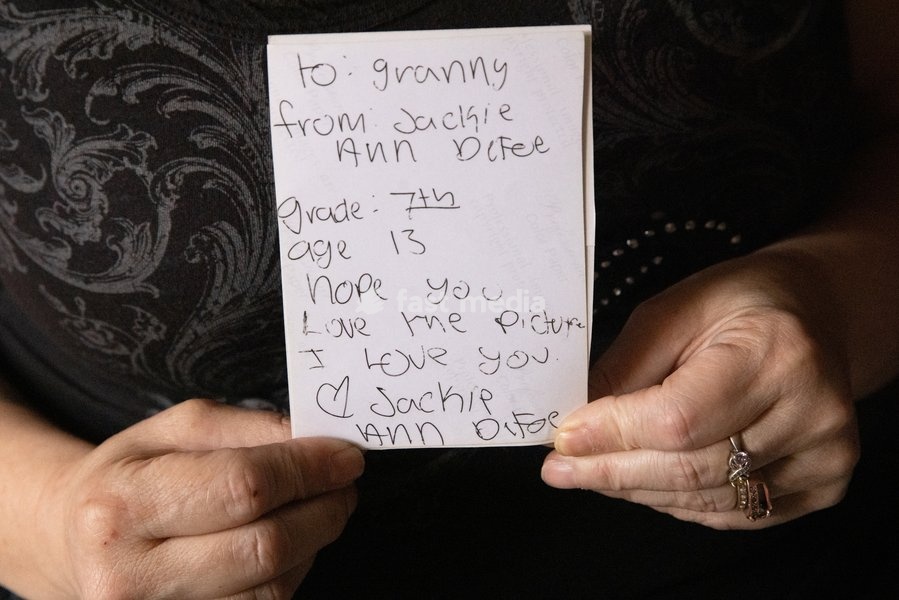 to: granny
from: Jackie
Ann DiFee
grade: 7th
age 13
hope you
Love the picture
I Love you.
♡ Jackie
Ann DiFee
fast media